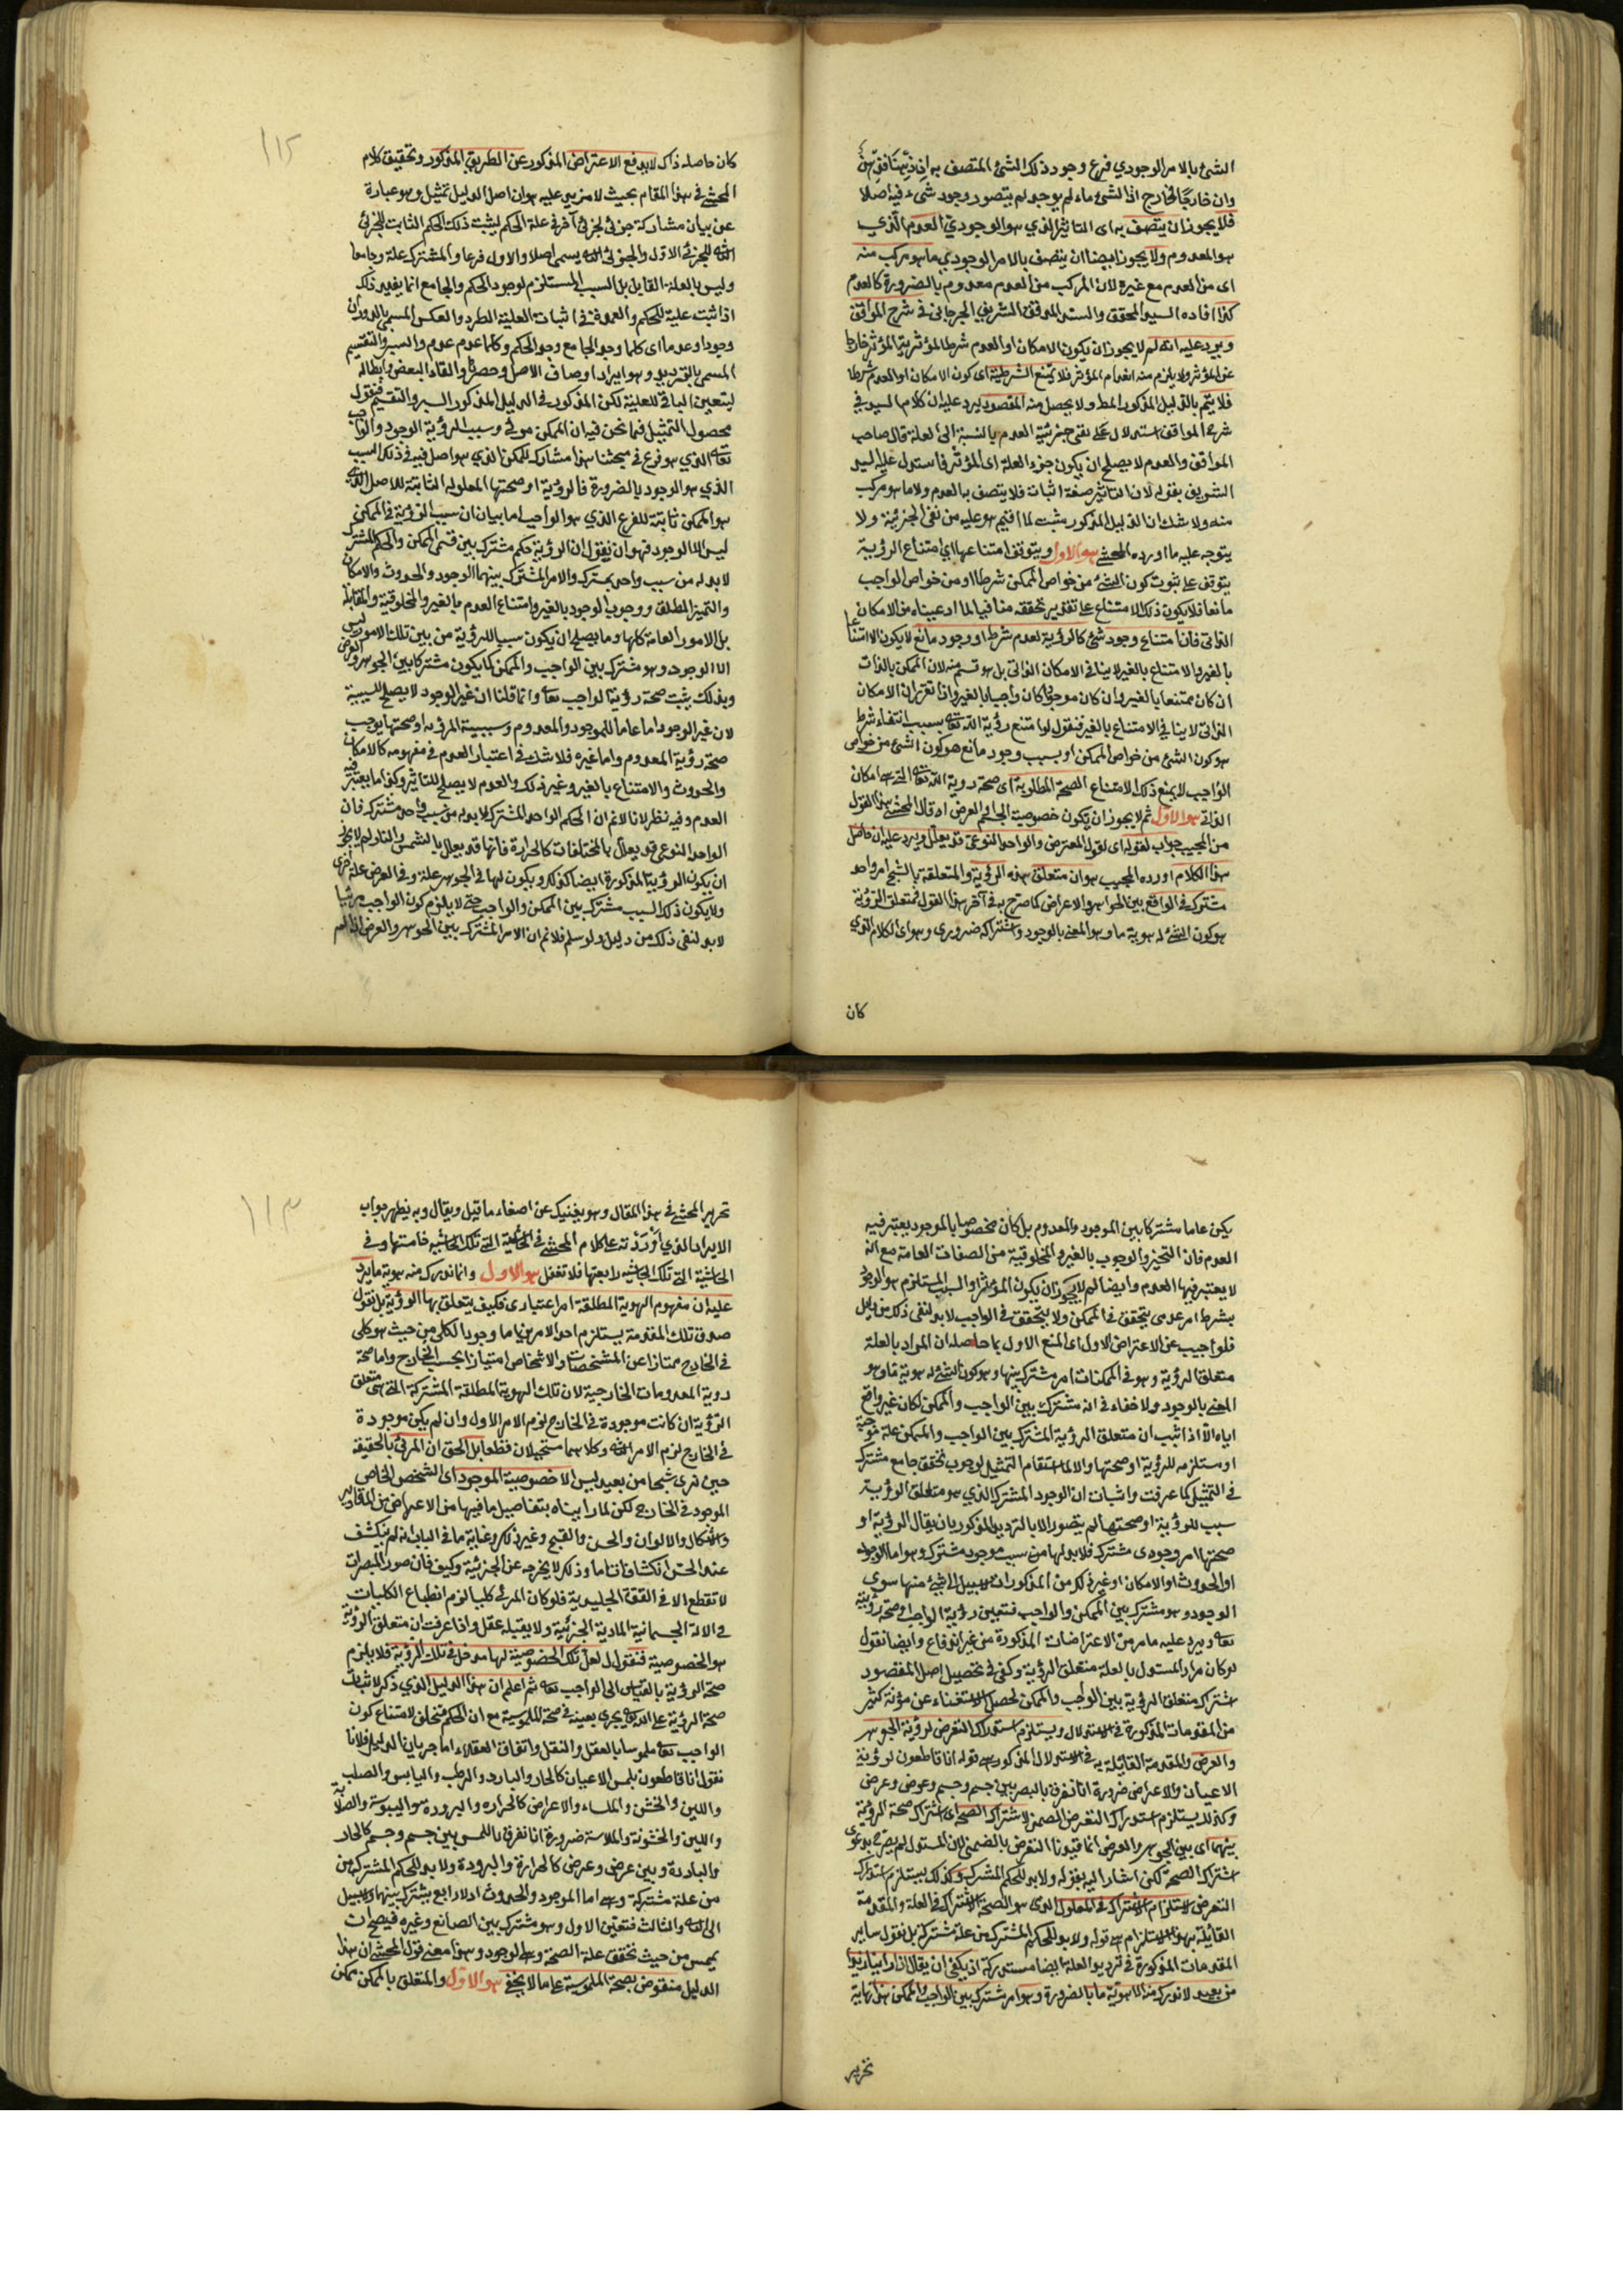 الشئ بالامر الوجودي فرع وجود ذلك الشئ المتصف به
وان خارجًا لخارج اذ الشئ ماء لم يوجد لم يتصور وجود شئ فيه اصلا
فلا يجوز ان يتصف به اى التاثير الذي هو الوجودي العدم الذي
هو المعدوم ولا يجوز ايضا ان يتصف بالامر الوجودي ما هو مركب منه
اى من العدم مع غيره لان المركب من العدم معدوم بالضرورة كالعدم
كذا افاده السيد المحقق والسند المدقق الشريف الجرجانى فى شرح المواقف
ويرد عليه انه لم لا يجوز ان يكون الامكان او العدم شرطا لمؤثرية المؤثر خارجا
عن المؤثر ولا يلزم منه انعدام المؤثر فلا يمتنع الشرطية اى كون الامكان او العدم شرطا
فلا يتم بالدليل المذكور المط ولا يحصل منه المقصود يرد عليه ان كلام السيد في
شرح المواقف استدلال على نفى جزئية العدم بالنسبة الى العلة قال صاحب
المواقف والعدم لا يصلح ان يكون جزء العلة اى المؤثر فاستدل عليه السيد
الشريف بقوله لان التاثير صفة اثبات فلا يتصف به العدم ولا ما هو مركب
منه ولا شك ان الدليل المذكور مثبت لما اقيم هو عليه من نفى الجزئية ولا
يتوجه عليه ما اورده المحشي هو الاول ويتوقف امتناعها اى امتناع الرؤية
يتوقف على ثبوت كون الشئ من خواص الممكن شرطا او من خواص الواجب
مانعا فلا يكون ذلك الامتناع على تقدير تحققه منافيا لما ادعيناه من الامكان
الذاتى فان امتناع وجود شئ كالرؤية لعدم شرط او وجود مانع لا يكون الا امتناعا
بالغير والامتناع بالغير لا ينافى الامكان الذاتى بل هو قسم منه لان الممكن بالذات
ان كان ممتنعا بالغير وان كان موجودا كان واجبا بالغير واذا تقرر ان الامكان
الذاتى لا ينافي الامتناع بالغير فنقول لو امتنع رؤية الله تعالى بسبب انتفاء شرط
هو كون الشئ من خواص الممكن او بسبب وجود مانع هو كون الشئ من خواص
الواجب لا يمنع ذلك الامتناع الصحة المطلوبة اى صحة روية الله تعالى التى هى امكان
الذاتى هو الاول ثم لا يجوز ان يكون خصوصية الجسم والعرض او قال المحشى هذا القول
من المجيب جواب لقوله اى لقول المعترض والواحد النوعى قد يعلل ويرد عليه ان حاصل
هذا الكلام اورده المجيب هو ان متعلق هذه الرؤية والمتعلقة بالشبح امر واحد
مشترك فى الواقع بين الجواهر والاعراض كما صرح به فى آخر هذا القول متعلق الرؤية
هو كون الشئ له هوية ما وهو المعنى بالوجود واشتراكه ضرورى وهو اى الكلام الذى
كان
١١٢
كان حاصله ذاك لا يدفع الاعتراض المذكور عن الطريق المذكور وتحقيق كلام
المحشى فى هذا المقام بحيث لا مزيد عليه هو ان اصل الدليل تمثيل وهو عبارة
عن بيان مشاركة جزئى لجزئى آخر فى علة الحكم ليثبت ذلك الحكم الثابت للجزئى
الثانى للجزئى الاول والجزئى الثانى يسمى اصلا والاول فرعا والمشترك علة وجامعا
وليس بالعلة القابل بل السبب المستلزم لوجود الحكم والجامع انما يفيد ذلك
اذا ثبت علية للحكم والعمدة فى اثبات العلية الطرد والعكس المسمى بالدوران
وجودا وعدما اى كلما وجد الجامع وجد الحكم وكلما عدم عدم والسبر والتقسيم
المسمى بالترديد وهو ايراد اوصاف الاصل وحصرها والغاء البعض وابطاله
ليتعين الباقى للعلية لكن المذكور فى الدليل المذكور السبر والتقسيم فنقول
محصول التمثيل فيما نحن فيه ان الممكن مرئى وسبب الرؤية الوجود والواجب
تعالى الذي هو فرع فى مبحثنا هذا مشارك للممكن الذي هو اصل فيه فى ذلك السبب
الذي هو الوجود بالضرورة فالرؤية او صحتها المعلولة الثابتة للاصل الذى
هو الممكن ثابتة للفرع الذي هو الواجب اما بيان ان سبب الرؤية فى الممكن
ليس الا الوجود فهو ان نقول ان الرؤية حكم مشترك بين قسمى الممكن والحكم المشترك
لا بد له من سبب واحد مشترك والامر المشترك بينهما الوجود والحدوث والامكان
والتميز المطلق ووجوب الوجود بالغير وامتناع العدم بالغير والمخلوقية والمقابلة
بل الامور العامة كلها وما يصلح ان يكون سببا للرؤية من بين تلك الامور ليس
الا الوجود وهو مشترك بين الواجب والممكن كما يكون مشتركا بين الجوهر والعرض
وبذلك يثبت صحة رؤية الواجب تعالى وانما قلنا ان غير الوجود لا يصلح للسببية
لان غير الوجود اما عاما للموجود والمعدوم وسببية المرئى او صحتها يوجب
صحة رؤية المعدوم واما غيره فلا شك فى اعتبار العدم فى مفهومه كالامكان
والحدوث والامتناع بالغير وغير ذلك والعدم لا يصلح للتاثير وكذا ما يعتبر فيه
العدم وفيه نظر لانا لا نم ان الحكم الواحد المشترك لا بد له من سبب واحد مشترك فان
الواحد النوعى قد يعلل بالمختلفات كالحرارة فانها قد يعلل بالشمس والنار لم لا يجوز
ان يكون الرؤية المذكورة ايضا كذلك ويكون لها فى الجوهر علة وفى العرض علة اخرى
ولا يكون ذلك السبب مشترك بين الممكن والواجب حتى لا يلزم كون الواجب مرئيا
لا بد لنفى ذلك من دليل ولو سلم فلا نم ان الامر المشترك بين الجوهر والعرض اذا لم
يكن عاما مشتركا بين الموجود والمعدوم بل كان مخصوصا بالموجود يعتبر فيه
العدم فان التحيز والوجوب بالغير والمخلوقية من الصفات العامة مع انه
لا يعتبر فيها العدم وايضا لم لا يجوز ان يكون المؤثر والسبب المستلزم هو الوجود
بشرط امر عدمى يتحقق فى الممكن ولا يتحقق فى الواجب لا بد لنفى ذلك من دليل
فلو اجيب عن الاعتراض الاول اى المنع الاول بما حاصله ان المراد بالعلة
متعلق الرؤية وهو فى الممكنات امر مشترك بينها وهو كون الشئ له هوية ما وهو
المعنى بالوجود ولا خفاء فى انه مشترك بين الواجب والممكن لكان غير دافع
اياه الا اذا ثبت ان متعلق الرؤية المشترك بين الواجب والممكن علة موجبة
او مستلزمه للرؤية او صحتها والا لما استقام التمثيل لوجوب تحقق جامع مشترك
فى التمثيل كما عرفت واثبات ان الوجود المشترك الذي هو متعلق الرؤية
سبب للرؤية او صحتها لم يتصور الا بالترديد المذكور بان يقال الرؤية او
صحتها امر وجودى مشترك فلا بد لها من سبب موجود مشترك وهو اما الوجود
او الحدوث او الامكان او غير ذلك من المذكورات لا سبيل الى شئ منها سوى
الوجود وهو مشترك بين الممكن والواجب فتعين رؤية الواجب او صحة رؤيته
تعالى ويرد عليه ما مر من الاعتراضات المذكورة من غير اندفاع وايضا نقول
لو كان مراد المستدل بالعلة متعلق الرؤية وكفى فى تحصيل اصل المقصود
اشتراك متعلق الرؤية بين الواجب والممكن لحصل الاستغناء عن مؤنة كثير
من المقدمات المذكورة فى الاستدلال ويستلزم استدراك التعرض لرؤية الجوهر
والعرض والمقدمة القائلة به فى الاستدلال المذكور هى قوله انا قاطعون لرؤية
الاعيان والاعراض ضرورة انا نفرق بالبصر بين جسم وجسم وعرض وعرض
وكذلك يستلزم استدراك التعرض الصحى لاشتراك الصحة اى اشتراك صحة الرؤية
بينهما اى بين الجوهر والعرض انما قيدنا التعرض بالضمنى لان المستدل لم يصرح بدعوى
اشتراك الصحة لكن اشار اليه بقوله ولا بد للحكم المشترك وكذلك يستلزم استدراك
التعرض لاستلزام الاشتراك فى المعلول الذى هو الصحة الاشتراك فى العلة والمقدمة
القائلة بهذا الاستلزام هى قوله ولا بد للحكم المشترك من علة مشتركة بل نقول ساير
المقدمات المذكورة فى ترديد العلة ايضا مستدركة اذ يكفى ان يقال اذا راينا زيدا
من بعيد لا ندرك منه الا هوية ما بالضرورة وهو امر مشترك بين الواجب والممكن هذا نهاية
تحرير
١١٣
تحرير المحشى فى هذا المقال وهو يغنيك عن اصغاء ما قيل ويقال وبه يظهر جواب
الايراد الذي اوردته على كلام المحشى فى الحاشية التى تلك الحاشيه خامستها وفى
الحاشية التى تلك الحاشيه رابعتها فلا تغفل هو الاول وانما ندرك منه هوية ما يرد
عليه ان مفهوم الهوية المطلقة امر اعتبارى فكيف يتعلق بها الرؤية بل نقول
صدق تلك المقدمة يستلزم احد الامرين اما وجود الكلى من حيث هو كلى
فى الخارج ممتازا عن المشخصات والاشخاص امتيازا بحسب الخارج واما صحة
روية المعدومات الخارجية لان تلك الهوية المطلقة المشتركة التى هى متعلق
الرؤية ان كانت موجودة فى الخارج لزم الامر الاول وان لم يكن موجودة
فى الخارج لزم الامر الثانى وكلاهما مستحيلان قطعا بل الحق ان المرئى بالحقيقة
حين نرى شبحا من بعيد ليس الا خصوصية الموجود اى الشخص الخاص
الموجود فى الخارج لكن لما رايناه بتفاصيل ما فيها من الاعراض من المقادير
والاشكال والالوان والحسن والقبح وغير ذلك وغاية ما فى الباب انه لم ينكشف
عند الحس انكشافا تاما وذلك لا يخرجه عن الجزئية وكيف فان صور المبصرات
لا تنطبع الا فى القوة الجليدية فلو كان المرئى كليا لزم انطباع الكليات
فى الالة الجسمانية المادية الجزئية ولا يقبله عقل واذا عرفت ان متعلق الرؤية
هو الخصوصية فنقول لعل تلك الخصوصية لها مدخل فى تلك الرؤية فلا يلزم
صحة الرؤية بالقياس الى الواجب تعالى ثم اعلم ان هذا الدليل الذي ذكر لاثبات
صحة الرؤية على الله تعالى يجرى بعينه فى صحة الملموسية مع ان الحكم متخلف لامتناع كون
الواجب تعالى ملموسا بالعقل والنقل واتفاق العقلاء اما جريان الدليل فلانا
نقول انا قاطعون بلمس الاعيان كالحار والبارد والرطب واليابس والصلب
واللين والخشن والملساء والاعراض كالحراره والبروده واليبوسة والصلابة
واللين والخشونة والملاسة ضرورة انا نفرق باللمس بين جسم وجسم كالحار
والبارد وبين عرض وعرض كالحرارة والبرودة ولا بد للحكم المشترك من
من علة مشتركة وهى اما الموجود والحدوث اذ لا رابع يشترك بينهما ولا سبيل
الى الثانى والثالث فتعين الاول وهو مشترك بين الصانع وغيره فيصح ان
يلمس من حيث تحقق علة الصحة وهى الوجود وهذا معنى قول المحشى ان هذا
الدليل منقوض بصحة الملموسية على ما لا يخفى هو الاول والمتعلق بالممكن ممكن